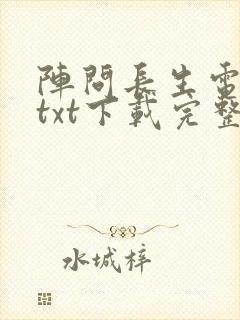 陣問長生電
txt下載完整
水城梓